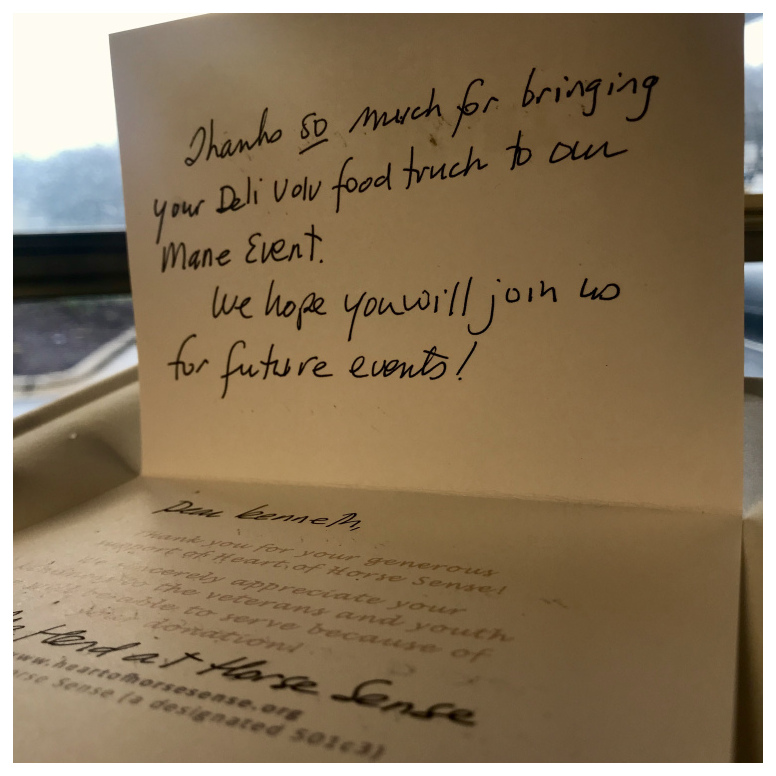 Thanks so much for bringing
your Deli Volv food truck to our
Mane Event.
We hope you will join us
for future events!
Dear Kenneth,
Thank you for your generous
support of Heart of Horse Sense!
We sincerely appreciate your
to the veterans and youth
able to serve because of
your donation!
Herd at Horse Sense
www.heartofhorsesense.org
orse Sense (a designated 501c3)